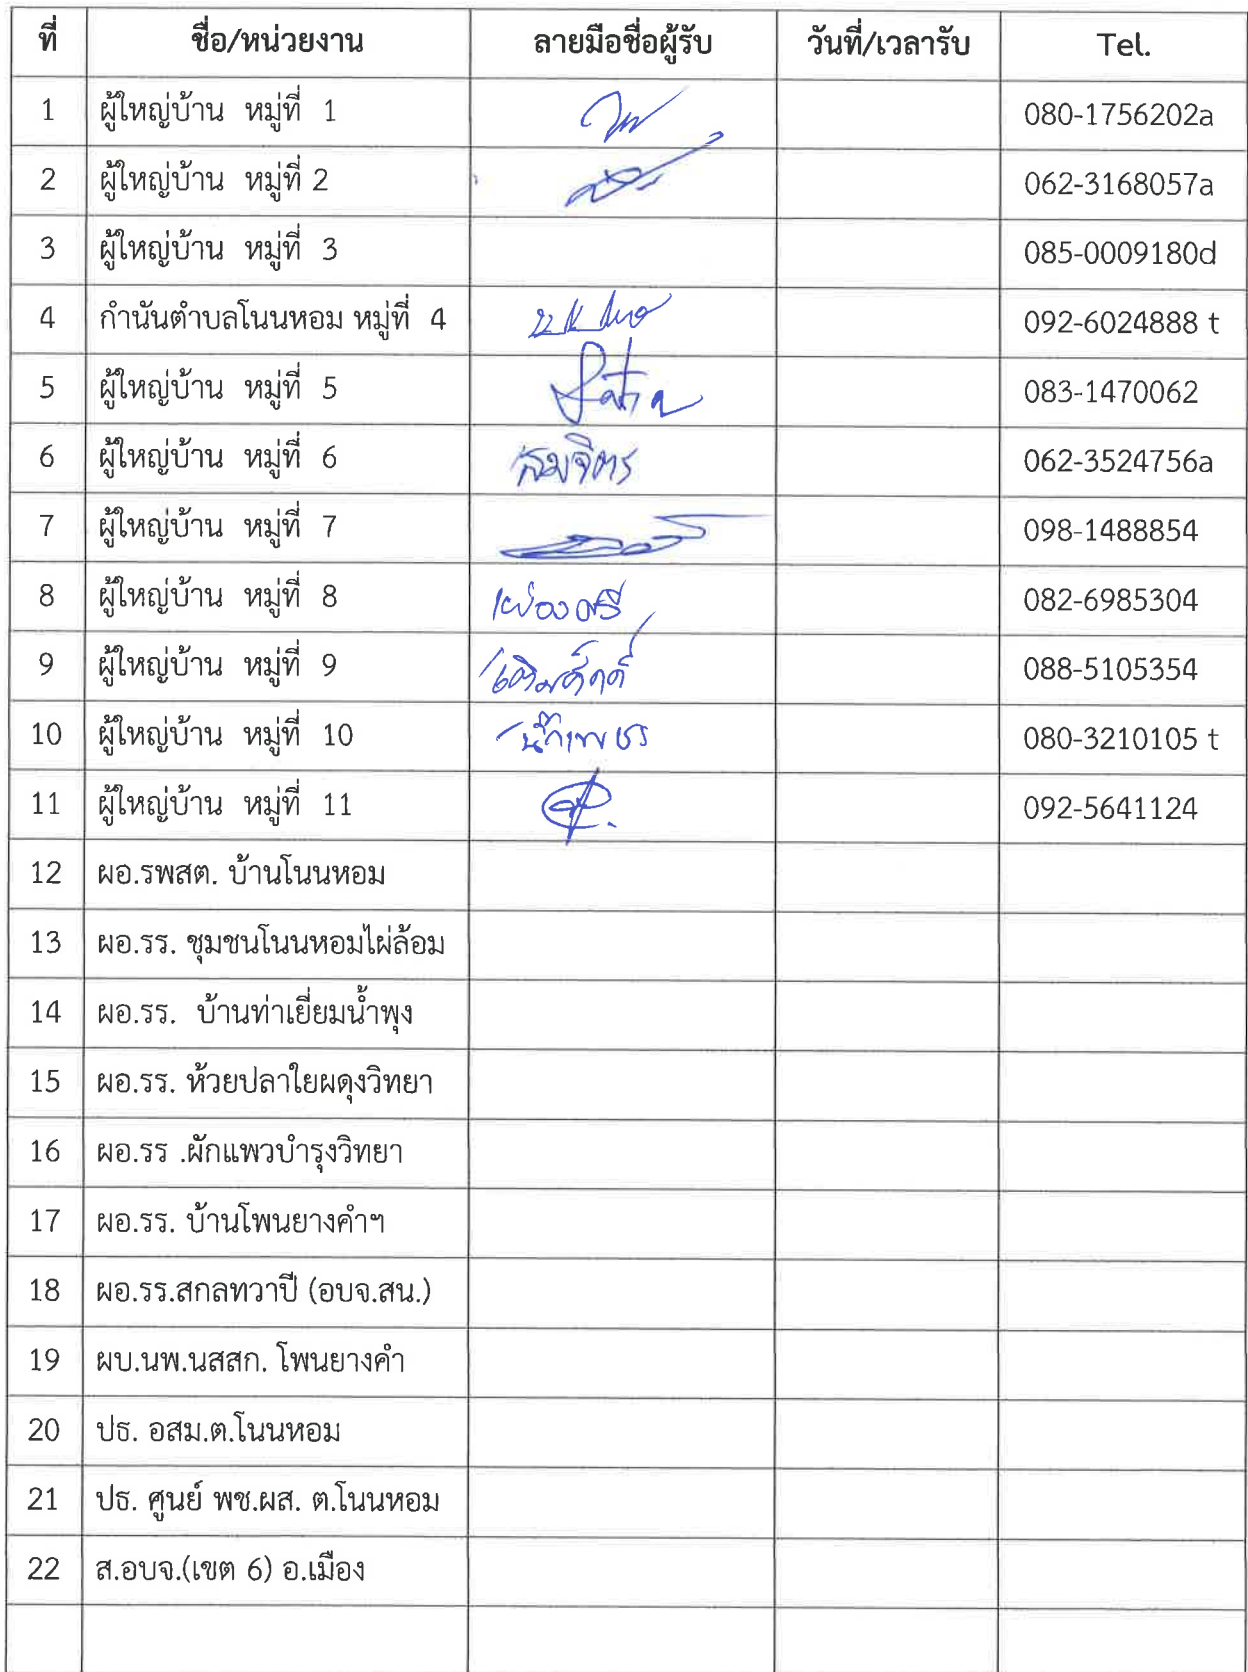 ที่ ชื่อ/หน่วยงาน ลายมือชื่อผู้รับ วันที่/เวลารับ Tel.
1 ผู้ใหญ่บ้าน หมู่ที่ 1 080-1756202a
2 ผู้ใหญ่บ้าน หมู่ที่ 2 062-3168057a
3 ผู้ใหญ่บ้าน หมู่ที่ 3 085-0009180d
4 กำนันตำบลโนนหอม หมู่ที่ 4 092-6024888 t
5 ผู้ใหญ่บ้าน หมู่ที่ 5 083-1470062
6 ผู้ใหญ่บ้าน หมู่ที่ 6 สมจิตร 062-3524756a
7 ผู้ใหญ่บ้าน หมู่ที่ 7 098-1488854
8 ผู้ใหญ่บ้าน หมู่ที่ 8 082-6985304
9 ผู้ใหญ่บ้าน หมู่ที่ 9 088-5105354
10 ผู้ใหญ่บ้าน หมู่ที่ 10 080-3210105 t
11 ผู้ใหญ่บ้าน หมู่ที่ 11 092-5641124
12 ผอ.รพสต. บ้านโนนหอม
13 ผอ.รร. ชุมชนโนนหอมไผ่ล้อม
14 ผอ.รร. บ้านท่าเยี่ยมน้ำพุง
15 ผอ.รร. ห้วยปลาใยผดุงวิทยา
16 ผอ.รร .ผักแพวบำรุงวิทยา
17 ผอ.รร. บ้านโพนยางคำฯ
18 ผอ.รร.สกลทวาปี (อบจ.สน.)
19 ผบ.นพ.นสสก. โพนยางคำ
20 ปธ. อสม.ต.โนนหอม
21 ปธ. ศูนย์ พช.ผส. ต.โนนหอม
22 ส.อบจ.(เขต 6) อ.เมือง